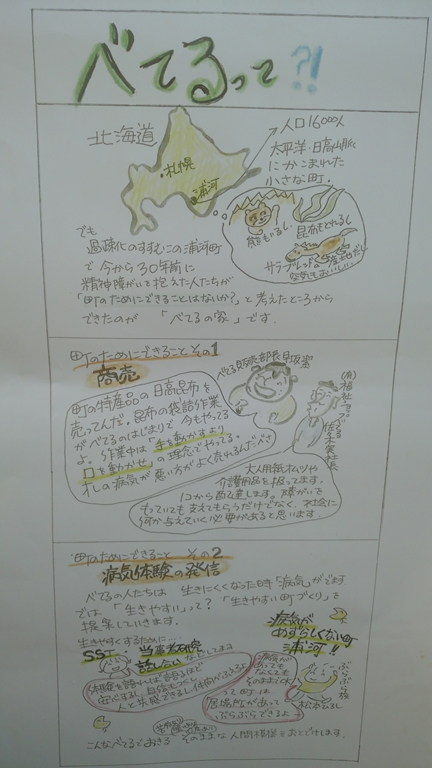 べてるって?!
北海道
・札幌
浦河
人口16000人
太平洋・日高山脈
にかこまれた
小さな町.
熊もいるし、
昆布もとれるし
サラブレッドの産地だし
空気もおいしい.
でも
過疎化のすすむこの浦河町
で 今から30年前に
精神障がいを抱えた人たちが
「町のためにできることはないか?」と考えたところから
できたのが 「べてるの家」です.
町のためにできること その1
商売
町の特産品の日高昆布を
売ってんだ。昆布の袋詰作業
がべてるのはじまりで 今もやってる
よ。作業中は「手を動かすより
口を動かせ」の理念でやってる.
オレの病気が悪い方がよく売れるんだべさ
べてる販売部長早坂潔
(有)福祉ショップべてる
佐々木實社長
大人用紙オムツや
介護用品を扱ってます。
1コから配達します。障がいを
もっていても支えてもらうだけでなく、社会に
何か与えていく必要があると思います.
町のためにできること その2
病気体験の発信
べてるの人たちは 生きにくくなった時「病気」がでます
では 「生きやすい」って?「生きやすい町づくり」を
提案していきます.
生きやすくするために…
SST・当事者研究
話し合い などしてます
病気が
めずらしくない町
浦河!!
体験を語れば語るほど
人と共感できるし仲間がふえるよ
病気が
あっても
なくても
そのままでいい
って町は
居場所があって
ぶらぶらできるよ
こんなべてるでおきる そのままな人間模様をおとどけします.